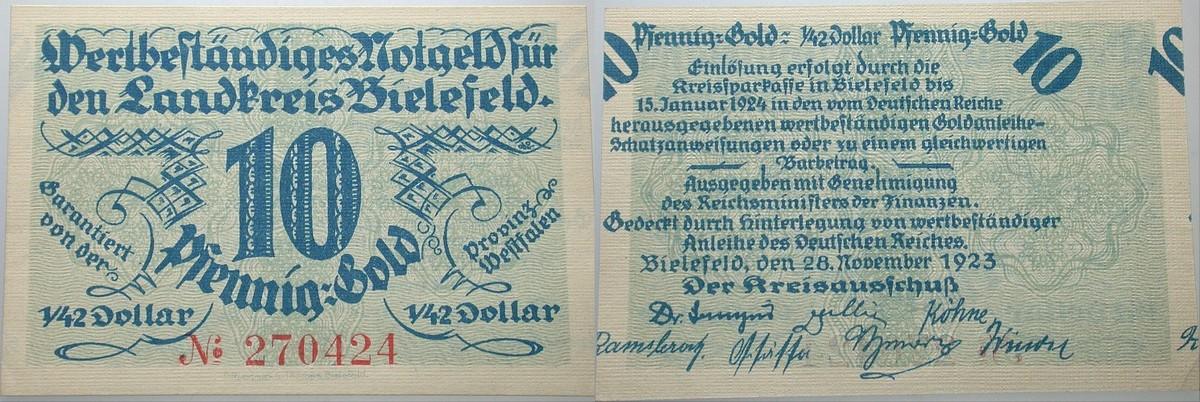 Wertbeständiges Notgeld für
den Landkreis Bielefeld.
10
Pfennig=Gold
Garantiert
von der
Provinz
Westfalen
1/42 Dollar
1/42 Dollar
No 270424
10 Pfennig=Gold = 1/42 Dollar Pfennig=Gold
10
10
Einlösung erfolgt durch die
Kreissparkasse in Bielefeld bis
15. Januar 1924 in den vom Deutschen Reiche
herausgegebenen wertbeständigen Goldanleihe-
Schatzanweisungen oder zu einem gleichwertigen
Barbetrag.
Ausgegeben mit Genehmigung
des Reichsministers der Finanzen.
Gedeckt durch Hinterlegung von wertbeständiger
Anleihe des Deutschen Reiches.
Bielefeld, den 28. November 1923
Der Kreisausschuß
Dr. Köhne